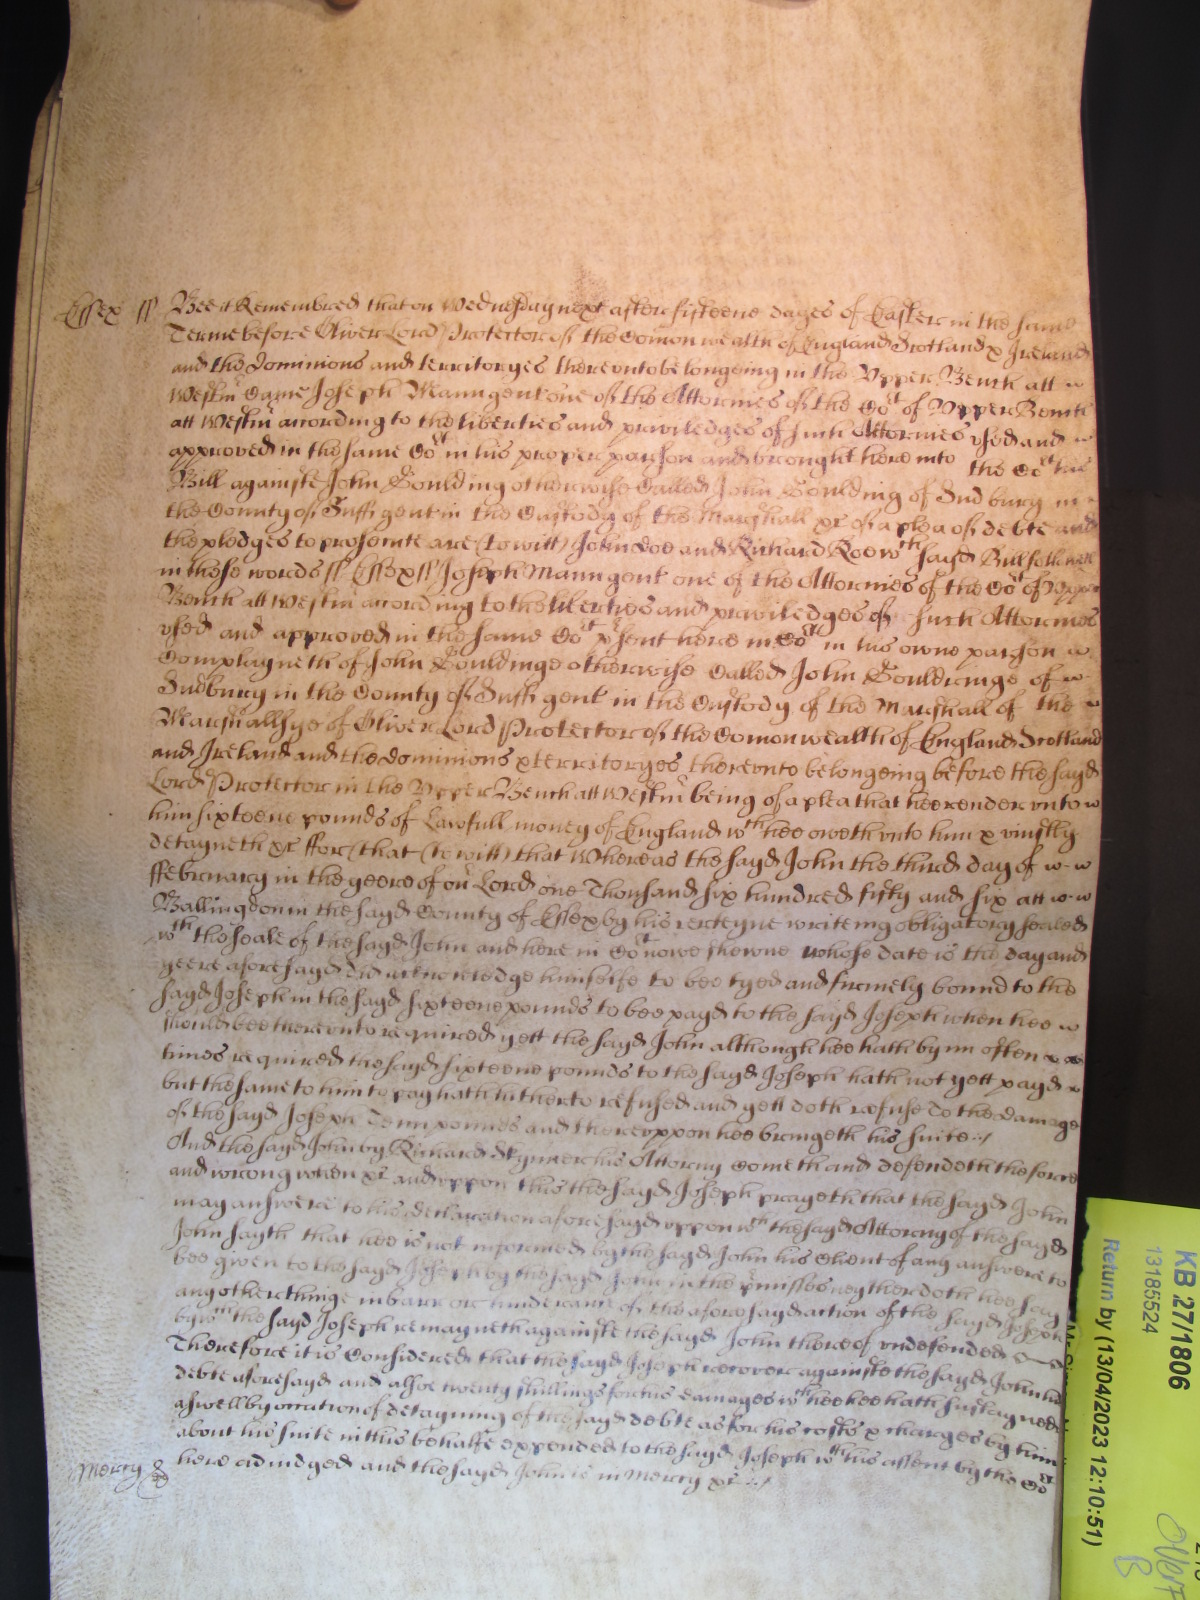 Essex ss Bee it Remembred that on Wednesday next after fifteene dayes of Easter in the same
Terme before Oliver Lord Protector of the Comon wealth of England Scotland & Ireland
and the dominions and territoryes thereonto belongeing in the Upper Bench att
Westm̃ Came Joseph Mann gent one of the Attornies of the Cot of Upper Bench
att Westm̃ according to the liberties and priviledges of such Attornies vsed and
approved in the same Cot in his proper parson and brought heere into the Cot his
Bill againste John Goulding otherwise Called John Goulding of Sudbury in
the County of Suff gent in the Custody of the Marshall &c of a plea of debte and
the pledges to prosecute are (to witt) John doe and Richard Roe wth sayd Bill followeth
in these words ss Essex ss Joseph Mann gent one of the Attornies of the Cot of Upper
Bench att Westm̃ according to the liberties and priviledges of such Attornies
vsed and approved in the same Cot p̃sent heere in Cot in his owne parson
Complayneth of John Gouldinge otherwise Called John Gouldringe of
Sudbury in the County of Suff gent in the Custody of the Marshall of the
Marshallsye of Oliver Lord Protector of the Comon wealth of England Scotland
and Ireland and the dominions & territoryes therevnto belongeing before the sayd
Lord Protector in the Vpper Bench att Westm̃ being of a plea that hee render vnto
him sixteene pounds of Lawfull money of England wth hee oweth vnto him & viniustly
detayneth &c ffor (that (to witt) that Whereas the sayd John the third day of
ffebruary in the yeere of our Lord one Thousand six hundred fifty and six att
Ballingdon in the sayd County of Essex by his certeyne writeing obligatory sealed
wth the seale of the sayd John and here in Cot nowe shewne whose date is the day and
yeere aforesayd did acknowledge himselfe to bee tyed and firmely bound to the
sayd Joseph in the sayd sixteene pounds to bee payd to the sayd Joseph when hee
should bee therevnto required yett the sayd John although hee hath bynn often
times required the sayd sixteene pounds to the sayd Joseph hath not yett payd
but the same to him to pay hath hitherto refused and yett doth refuse To the damage
of the sayd Joseph Tenn pounds and therevppon hee bringeth his suite
And the sayd John by Richard Skynner his Attorny Cometh and defendeth the force
and wrong when &c and vppon this the sayd Joseph prayeth that the sayd John
may answere to his declaration aforesayd vppon wch the sayd Attorny of the sayd
John sayth that hee is not informed by the sayd John his Client of any answere to
bee given to the sayd Joseph by the sayd John in the p̃misses neyther doth hee say
any other thinge in barr or hinderance of the aforesayd action of the sayd Joseph
by wch the sayd Joseph remayneth againste the sayd John thereof vndefended
Therefore it is Considered that the sayd Joseph recover againste the sayd John his
debte aforesayd and alsoe twenty shillings for his damages wch hee hee hath sustayned
aswell by occation of detayning of the sayd debte as for his costs & charges by him
about his suite in this behalfe expended to the sayd Joseph wth his assent by the Cot
Mercy &c here adiudged and the sayd John is in Mercy &c
KB 27/1806
13185524
Return by (13/04/2023 12:10:51)